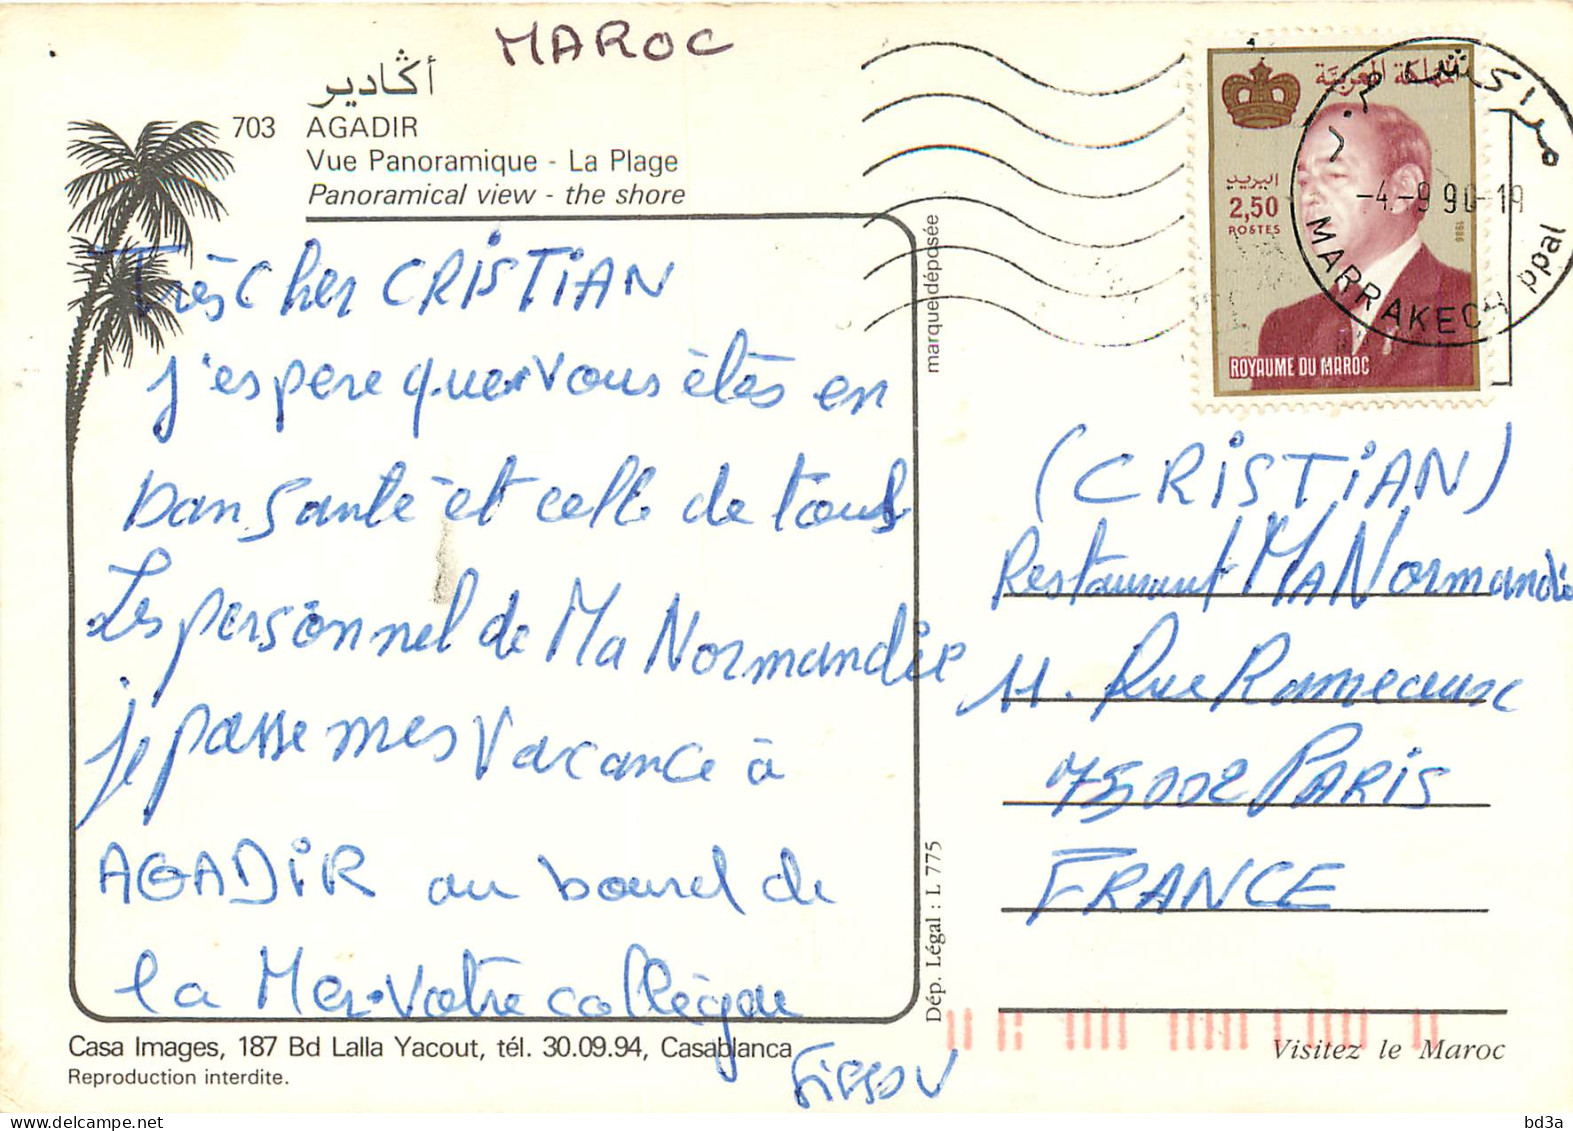 MAROC
أݣادير
703 AGADIR
Vue Panoramique - La Plage
Panoramical view - the shore
Très Cher CRISTIAN
j'espere que vous êtès en
bon Santé et cell de tous
Les personnel de Ma Normandie
je passe mes Vacance à
AGADIR au bourd de
la Mer. Votre collègue
Casa Images, 187 Bd Lalla Yacout, tél. 30.09.94, Casablanca
Reproduction interdite.
marque déposée
Dép. Légal : L 775
المملكة المغربية
البريد
2,50
POSTES
1986
ROYAUME DU MAROC
مراكش م.ر
-4.-9 90-19
MARRAKECH ppal
(CRISTIAN)
Restaurant MA Normandie
11. Rue Rameaux
75002 PARIS
FRANCE
Visitez le Maroc
bd3a